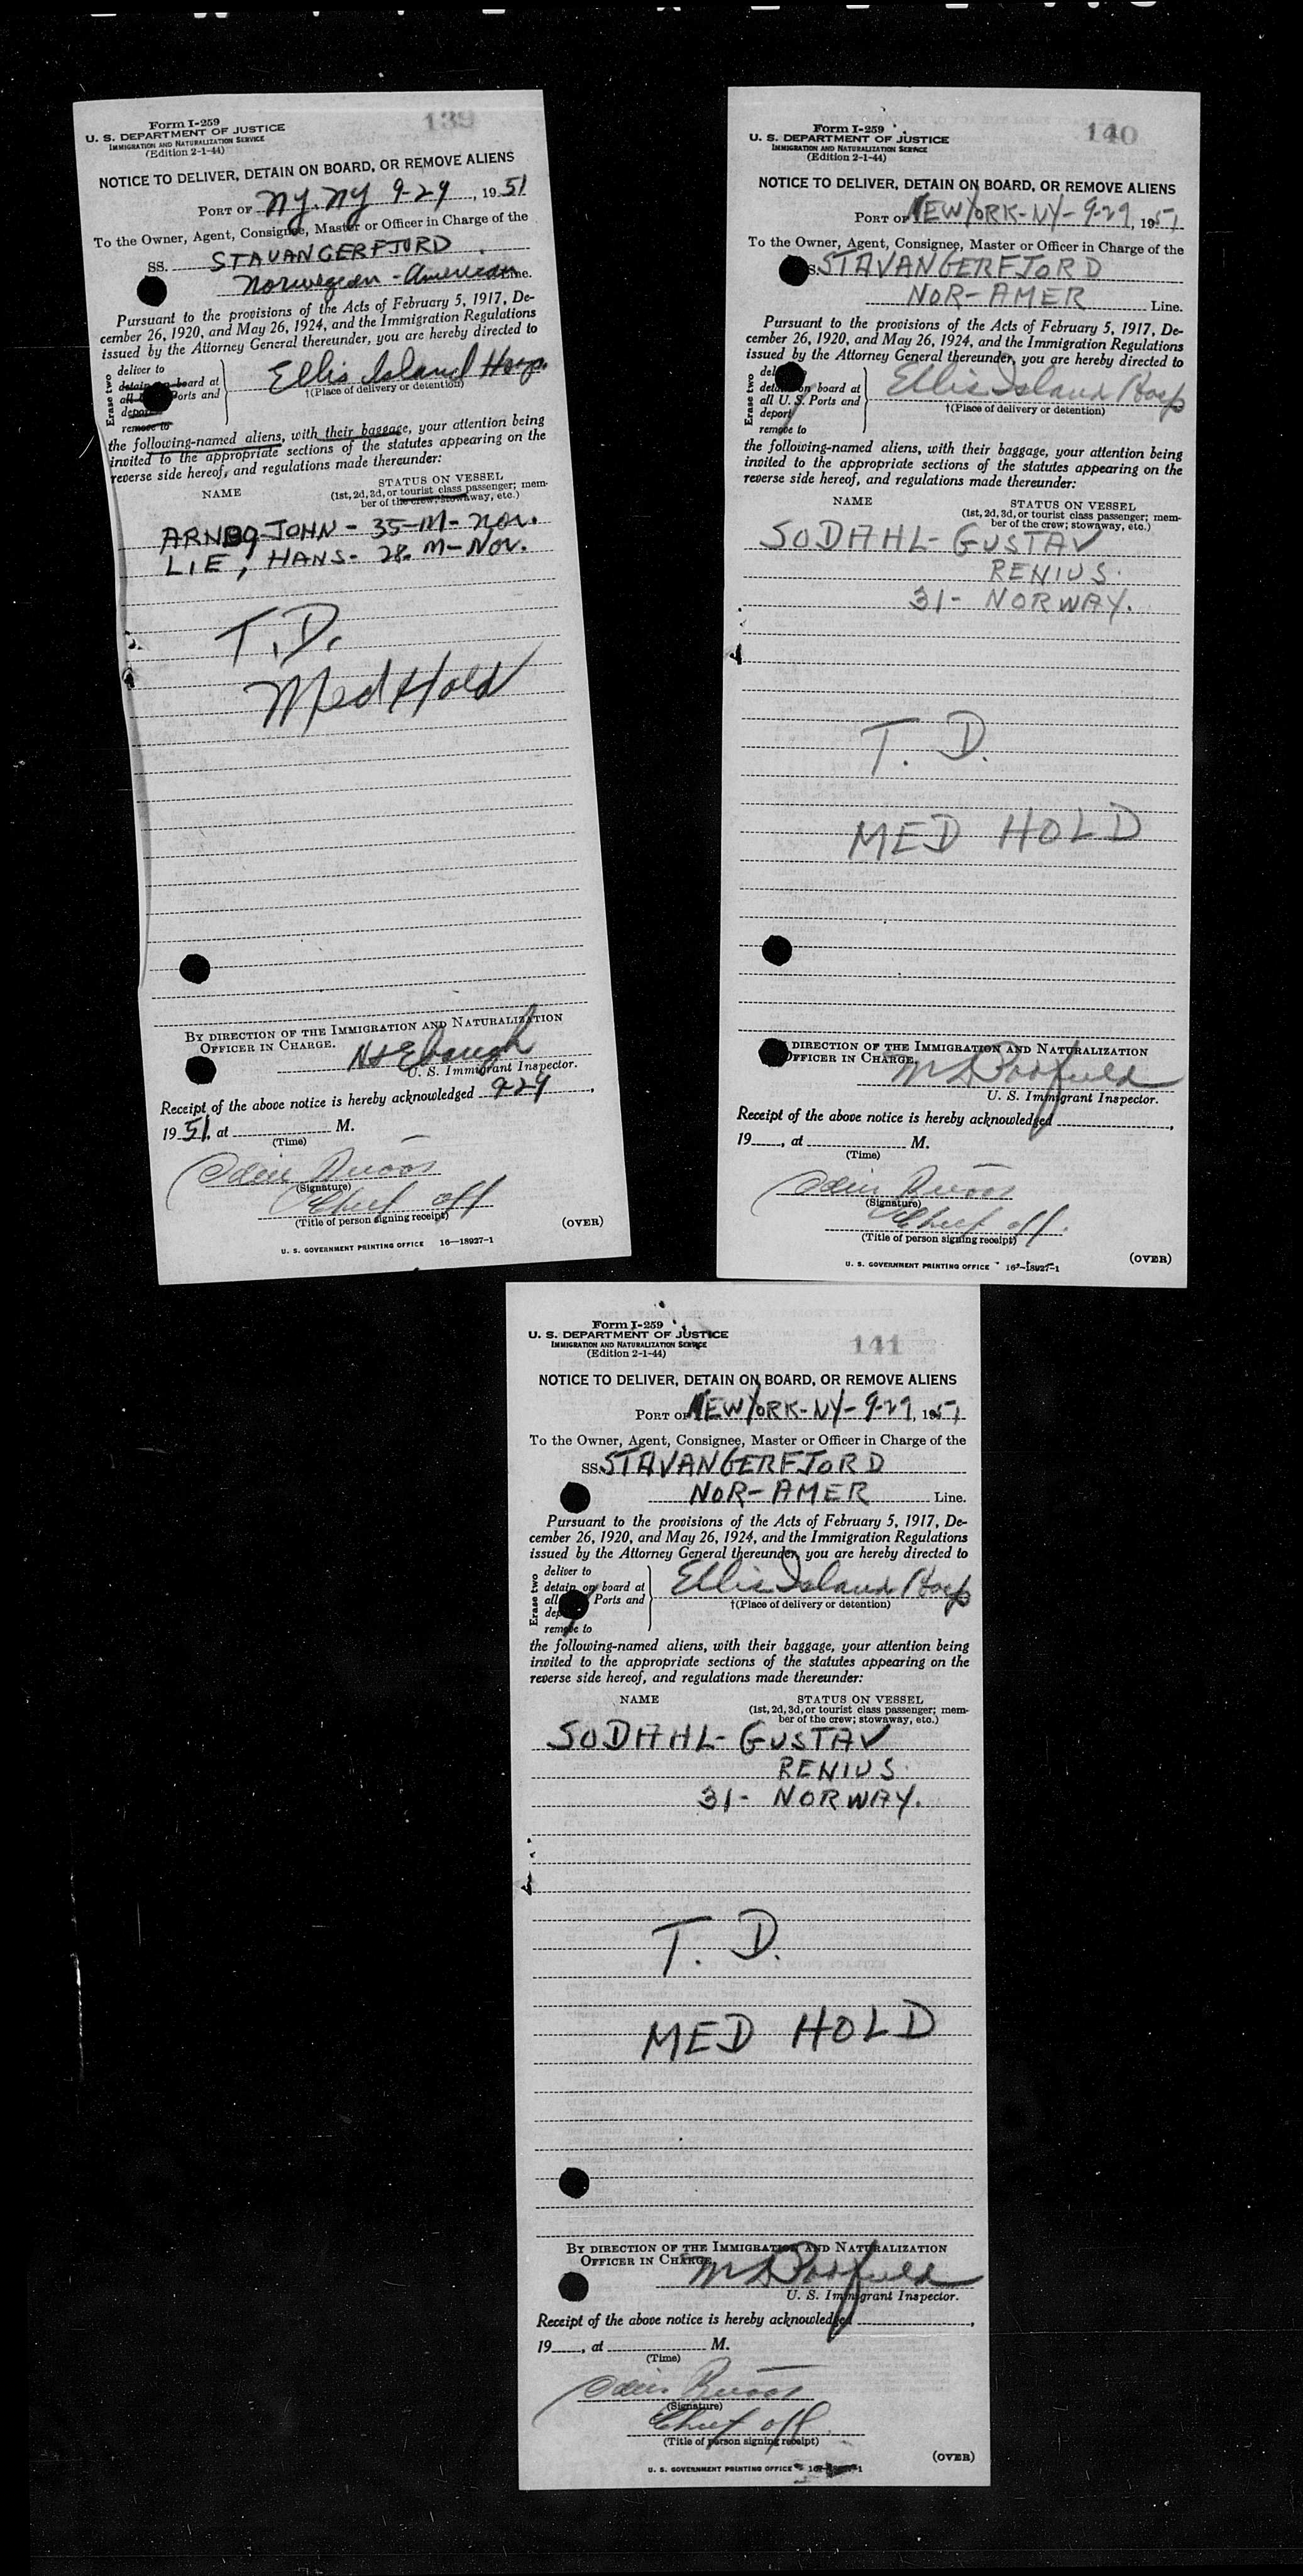 139
Form I-259
U. S. DEPARTMENT OF JUSTICE
IMMIGRATION AND NATURALIZATION SERVICE
(Edition 2-1-44)
NOTICE TO DELIVER, DETAIN ON BOARD, OR REMOVE ALIENS
PORT OF NY. NY 9-29, 1951
To the Owner, Agent, Consignee, Master or Officer in Charge of the
SS. STAVANGERFJORD
Norwegian-American Line.
Pursuant to the provisions of the Acts of February 5, 1917, De-
cember 26, 1920, and May 26, 1924, and the Immigration Regulations
issued by the Attorney General thereunder, you are hereby directed to
Erase two
deliver to
detain on board at
all Ports and
deport
remove to
Ellis Island Hosp.
†(Place of delivery or detention)
the following-named aliens, with their baggage, your attention being
invited to the appropriate sections of the statutes appearing on the
reverse side hereof, and regulations made thereunder:
NAME
STATUS ON VESSEL
(1st, 2d, 3d, or tourist class passenger; mem-
ber of the crew; stowaway, etc.)
JOHN - 35-M- Nor.
LIE, HANS - 28. M-Nor.
T.D.
Med Hold
BY DIRECTION OF THE IMMIGRATION AND NATURALIZATION
OFFICER IN CHARGE.
U. S. Immigrant Inspector.
Receipt of the above notice is hereby acknowledged 9-29,
1951, at M.
(Time)
(Signature)
Chief off
(Title of person signing receipt)
(OVER)
U. S. GOVERNMENT PRINTING OFFICE 16—18927-1
140
Form I-259
U. S. DEPARTMENT OF JUSTICE
IMMIGRATION AND NATURALIZATION SERVICE
(Edition 2-1-44)
NOTICE TO DELIVER, DETAIN ON BOARD, OR REMOVE ALIENS
PORT OF NEW YORK-NY-9-29, 1951
To the Owner, Agent, Consignee, Master or Officer in Charge of the
S. STAVANGERFJORD
NOR-AMER Line.
Pursuant to the provisions of the Acts of February 5, 1917, De-
cember 26, 1920, and May 26, 1924, and the Immigration Regulations
issued by the Attorney General thereunder, you are hereby directed to
Erase two
deliver to
detain on board at
all U. S. Ports and
deport
remove to
Ellis Island Hosp
†(Place of delivery or detention)
the following-named aliens, with their baggage, your attention being
invited to the appropriate sections of the statutes appearing on the
reverse side hereof, and regulations made thereunder:
NAME
STATUS ON VESSEL
(1st, 2d, 3d, or tourist class passenger; mem-
ber of the crew; stowaway, etc.)
SODAHL - GUSTAV
RENIUS.
31- NORWAY.
T. D.
MED HOLD
DIRECTION OF THE IMMIGRATION AND NATURALIZATION
OFFICER IN CHARGE.
U. S. Immigrant Inspector.
Receipt of the above notice is hereby acknowledged ,
19 , at M.
(Time)
(Signature)
Chief off.
(Title of person signing receipt)
(OVER)
U. S. GOVERNMENT PRINTING OFFICE 16—18927-1
141
Form I-259
U. S. DEPARTMENT OF JUSTICE
IMMIGRATION AND NATURALIZATION SERVICE
(Edition 2-1-44)
NOTICE TO DELIVER, DETAIN ON BOARD, OR REMOVE ALIENS
PORT OF NEW YORK-NY-9-29, 1951
To the Owner, Agent, Consignee, Master or Officer in Charge of the
SS. STAVANGERFJORD
NOR-AMER Line.
Pursuant to the provisions of the Acts of February 5, 1917, De-
cember 26, 1920, and May 26, 1924, and the Immigration Regulations
issued by the Attorney General thereunder, you are hereby directed to
Erase two
deliver to
detain on board at
all Ports and
deport
remove to
Ellis Island Hosp
†(Place of delivery or detention)
the following-named aliens, with their baggage, your attention being
invited to the appropriate sections of the statutes appearing on the
reverse side hereof, and regulations made thereunder:
NAME
STATUS ON VESSEL
(1st, 2d, 3d, or tourist class passenger; mem-
ber of the crew; stowaway, etc.)
SODAHL - GUSTAV
RENIUS.
31- NORWAY.
T. D.
MED HOLD
BY DIRECTION OF THE IMMIGRATION AND NATURALIZATION
OFFICER IN CHARGE.
U. S. Immigrant Inspector.
Receipt of the above notice is hereby acknowledged ,
19 , at M.
(Time)
(Signature)
Chief off.
(Title of person signing receipt)
(OVER)
U. S. GOVERNMENT PRINTING OFFICE